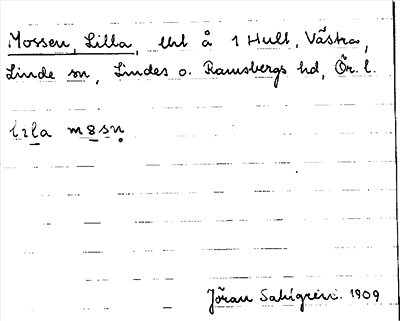 Mossen, Lilla, lht å 1 Hult, Västra,
Linde sn, Lindes o. Ramsbergs hd, Ör. l.
lɩla m8sn̥
Jöran Sahlgren. 1909